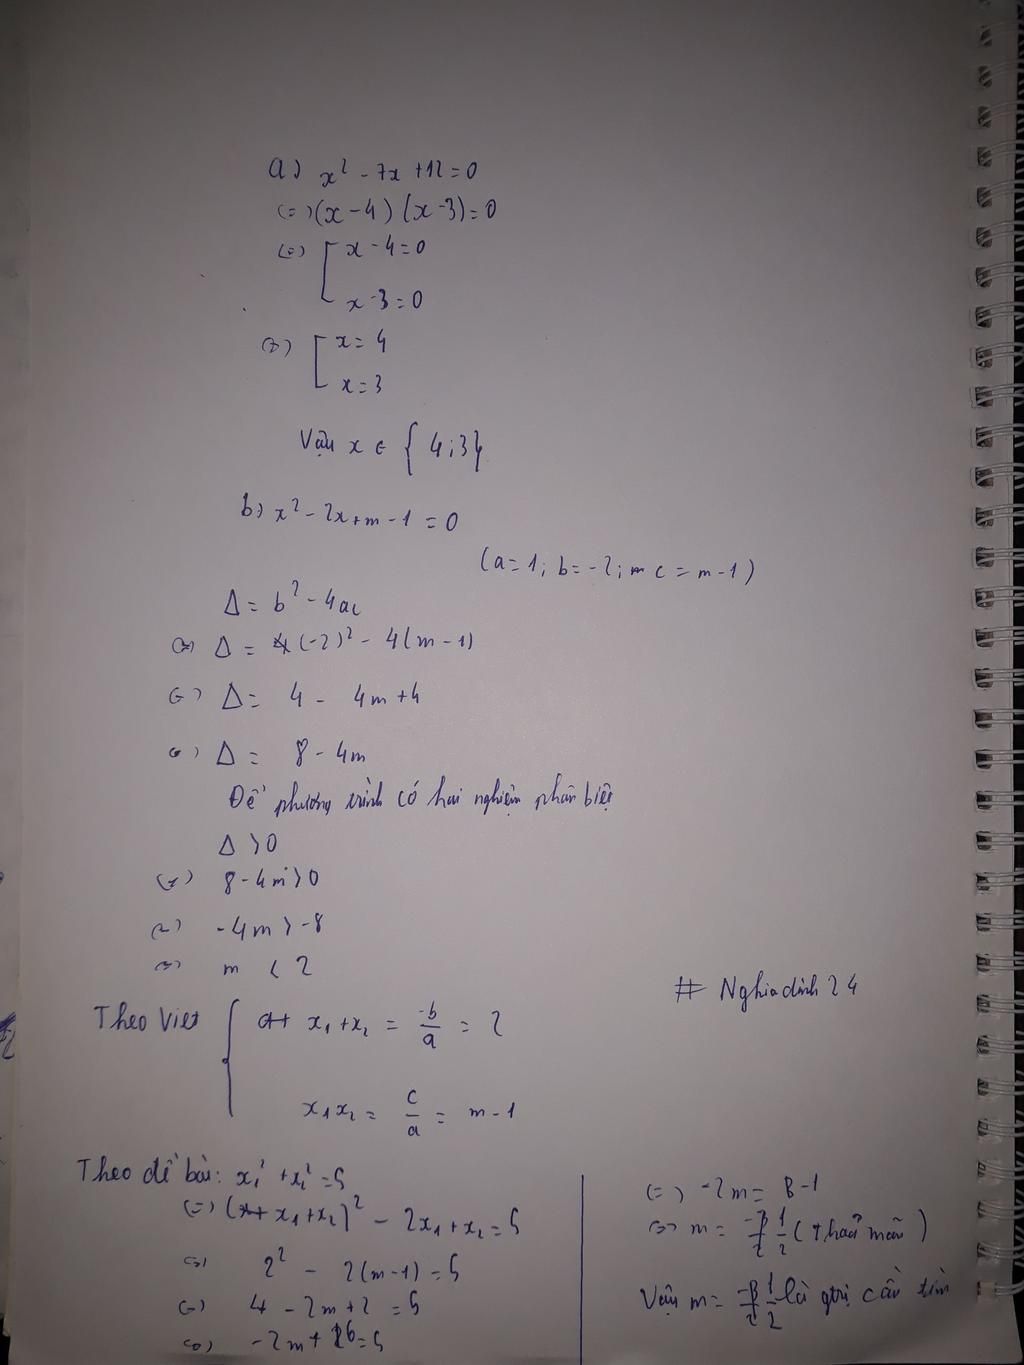 a) x² - 7x + 12 = 0
(=) (x - 4) (x - 3) = 0
(=) [ x - 4 = 0
x - 3 = 0
(=) [ x = 4
x = 3
Vậy x ∈ { 4 ; 3 }
b) x² - 2x + m - 1 = 0
(a = 1 ; b = -2 ; c = m - 1)
Δ = b² - 4ac
(=) Δ = (-2)² - 4(m - 1)
(=) Δ = 4 - 4m + 4
(=) Δ = 8 - 4m
Để phương trình có hai nghiệm phân biệt
Δ > 0
(=) 8 - 4m > 0
(=) -4m > -8
(=) m < 2
# Nghiadinh24
Theo Viet { x₁ + x₂ = -b/a = 2
x₁x₂ = c/a = m - 1
Theo đề bài: x₁² + x₂² = 5
(=) (x₁ + x₂)² - 2x₁ + x₂ = 5
(=) 2² - 2(m - 1) = 5
(=) 4 - 2m + 2 = 5
(=) -2m + 6 = 5
(=) -2m = -1
(=) m = 1/2 (thoả mãn)
Vậy m = 1/2 là gtrị cần tìm